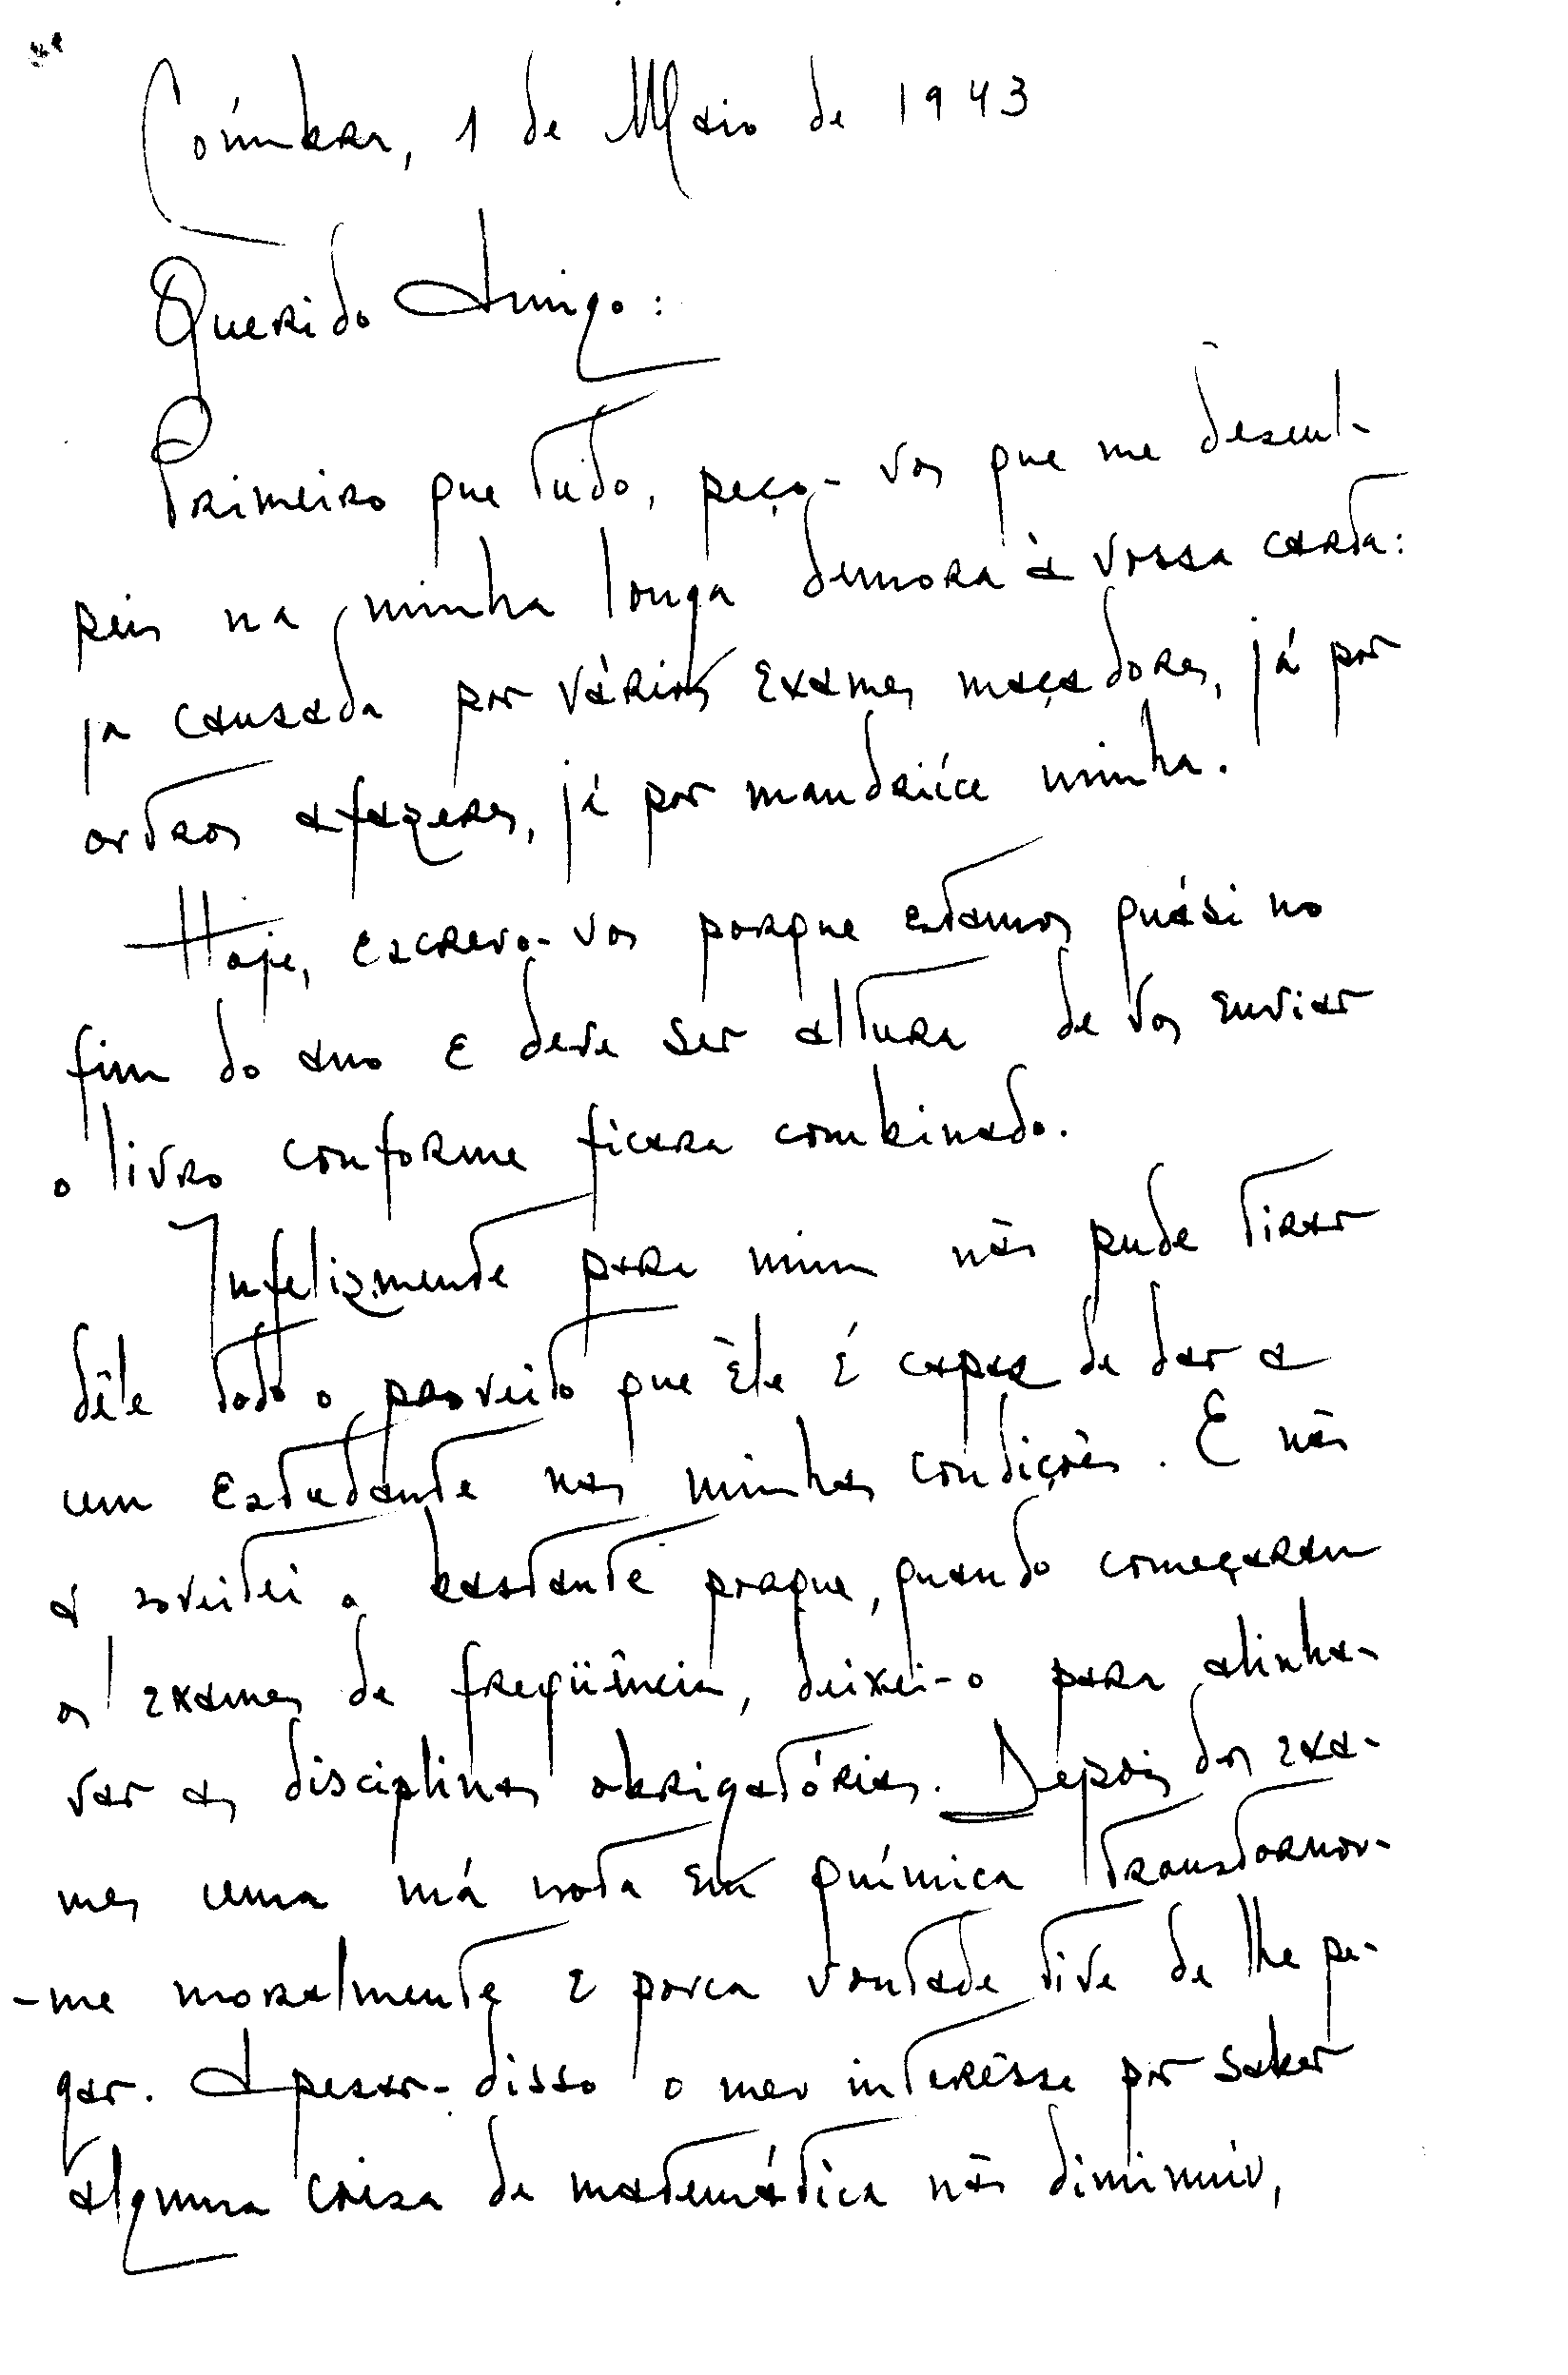 Coímbra, 1 de Maio de 1943
Querido Amigo:
Primeiro que tudo, peço-vos que me descul-
peis na minha longa demora à vossa carta:
já causada por vários exames maçadores, já por
outros afazeres, já por mandriíce minha.
Hoje, escrevo-vos porque estamos quási no
fim do ano e deve ser altura de vos enviar
o livro conforme ficara combinado.
Infelizmente para mim não pude tirar
dêle todo o proveito que êle é capaz de dar a
um estudante nas minhas condições. E não
o bastante porque, quando começaram
os exames de freqüência, deixei-o para alinha-
var as disciplinas obrigatórias. Depois dos exa-
mes uma má nota em química transtornou-
-me moralmente e pouca vontade tive de lhe pe-
gar. Apesar-disso o meu interêsse por saber
alguma coisa de matemática não diminuiu,